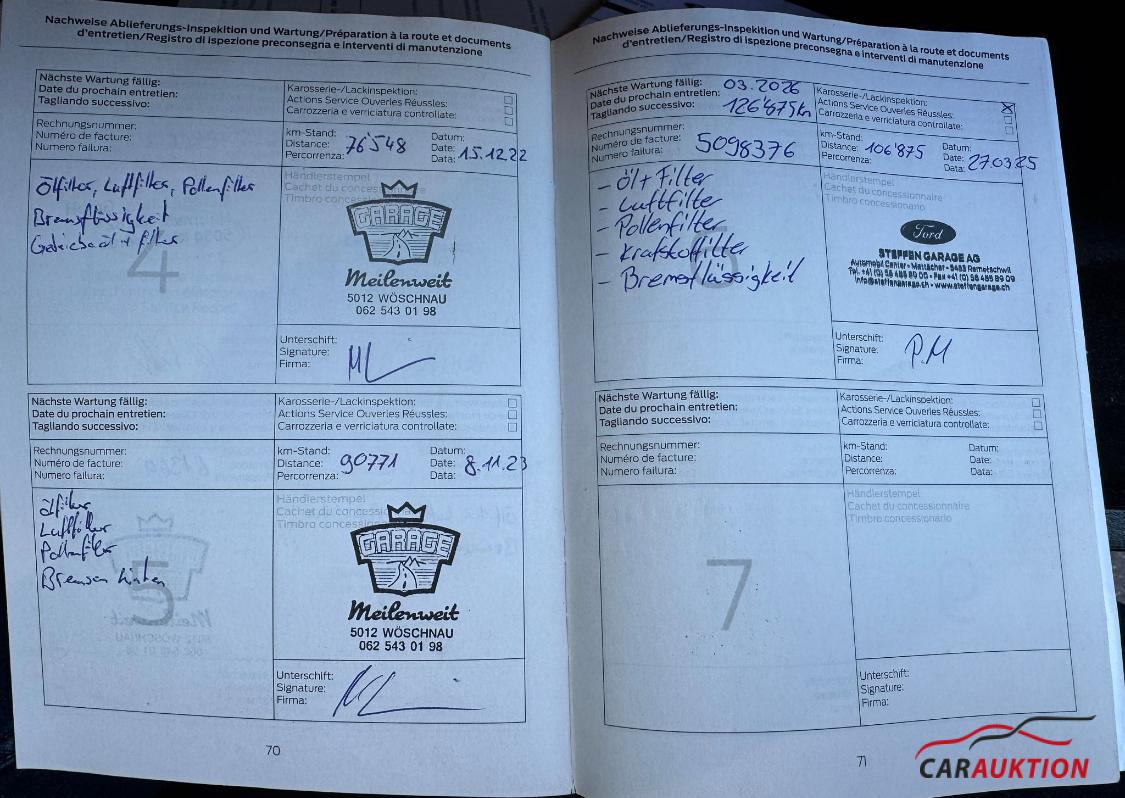 Nachweise Ablieferungs-Inspekition und Wartung/Préparation à la route et documents
d'entretien/Registro di ispezione preconsegna e interventi di manutenzione
Nächste Wartung fällig:
Date du prochain entretien:
Tagliando successivo:
Karosserie-/Lackinspektion:
Actions Service Ouveries Réussles:
Carrozzeria e verriciatura controllate:
Rechnungsnummer:
Numéro de facture:
Numero failura:
km-Stand:
Distance: 76'548
Percorrenza:
Datum:
Date:
Data: 15.12.22
Ölfilter, Luftfilter, Pollenfilter
Bremsflüssigkeit
Getriebeöl + filter
4
Händlerstempel
Cachet du concessionnaire
Timbro concessionario
GARAGE
Meilenweit
5012 WÖSCHNAU
062 543 01 98
Unterschift:
Signature:
Firma:
Nächste Wartung fällig:
Date du prochain entretien:
Tagliando successivo:
Karosserie-/Lackinspektion:
Actions Service Ouveries Réussles:
Carrozzeria e verriciatura controllate:
Rechnungsnummer:
Numéro de facture:
Numero failura:
km-Stand:
Distance: 90771
Percorrenza:
Datum:
Date: 8.11.23
Data:
Ölfilter
Luftfilter
Pollenfilter
Bremsen hinten
5
Händlerstempel
Cachet du concessionnaire
Timbro concessionario
GARAGE
Meilenweit
5012 WÖSCHNAU
062 543 01 98
Unterschift:
Signature:
Firma:
70
Nachweise Ablieferungs-Inspekition und Wartung/Préparation à la route et documents
d'entretien/Registro di ispezione preconsegna e interventi di manutenzione
Nächste Wartung fällig: 03.2026
Date du prochain entretien:
Tagliando successivo: 126'875km
Karosserie-/Lackinspektion:
Actions Service Ouveries Réussles:
Carrozzeria e verriciatura controllate:
Rechnungsnummer:
Numéro de facture: 5098376
Numero failura:
km-Stand:
Distance: 106'875
Percorrenza:
Datum:
Date: 27.03.25
Data:
- Öl + Filter
- Luftfilter
- Pollenfilter
- Krafstoffilter
- Bremsflüssigkeit
6
Händlerstempel
Cachet du concessionnaire
Timbro concessionario
Ford
STEFFEN GARAGE AG
Automobil Center • Mattächer • 5453 Remetschwil
Tel. +41 (0) 56 485 89 00 • Fax +41 (0) 56 485 89 09
info@steffengarage.ch • www.steffengarage.ch
Unterschift:
Signature: P.M
Firma:
Nächste Wartung fällig:
Date du prochain entretien:
Tagliando successivo:
Karosserie-/Lackinspektion:
Actions Service Ouveries Réussles:
Carrozzeria e verriciatura controllate:
Rechnungsnummer:
Numéro de facture:
Numero failura:
km-Stand:
Distance:
Percorrenza:
Datum:
Date:
Data:
7
Händlerstempel
Cachet du concessionnaire
Timbro concessionario
Unterschift:
Signature:
Firma:
71
CARAUKTION